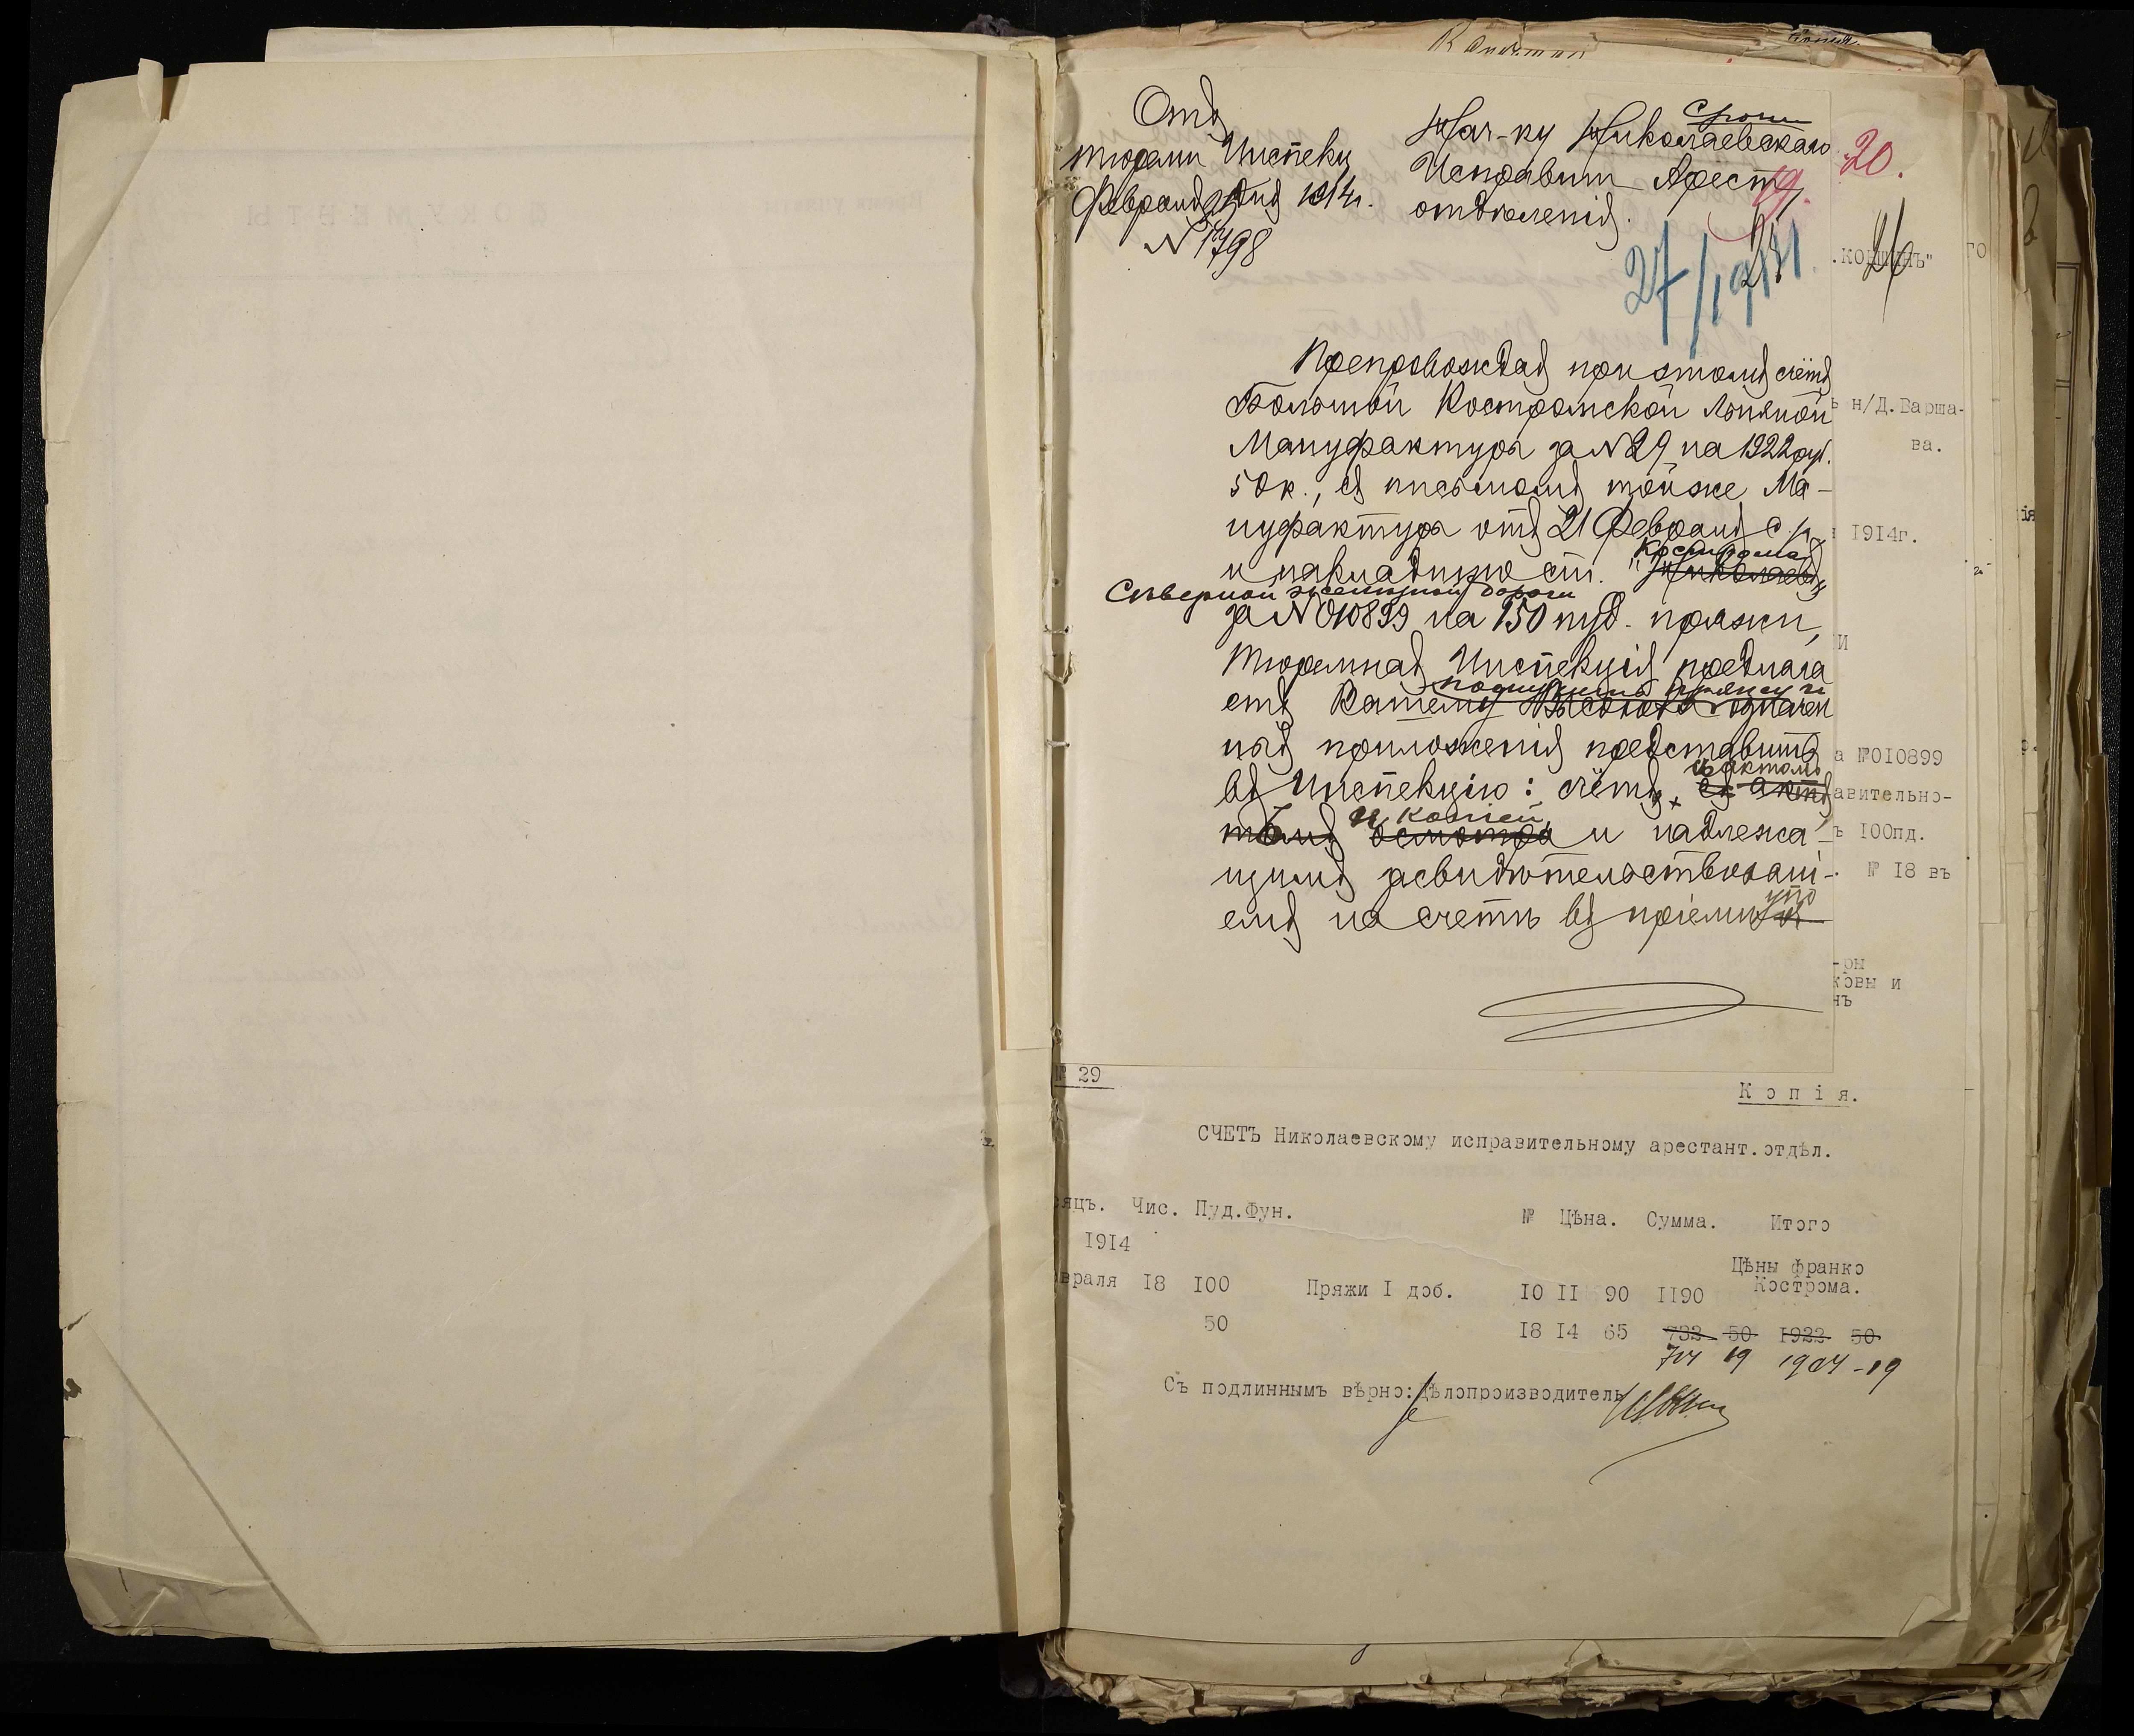 Копія.
Отд.
Тюремн Инспекц
Февраля 27 дня 1914г.
№ 1798
Срочн
Нач-ку Николаевскаго
Исправит Арест
отдѣленія.
20.
19.
26
27/II 1914
Препровождая при этомъ счётъ
Большой Костромской Льняной
Мануфактуры за №29 на 1922 руб.
50к., съ письмомъ той же Ма-
нуфактуры отъ 21 Февраля с.г.
и накладную ст. "Кострома Николаевъ
Сѣверной желѣзной дороги
за №010899 на 150 пуд. пряжи,
Тюремная Инспекція предлага
етъ Вашему Высокоб получить пряжу и означен
ныя приложенія представить
въ Инспекцію: счётъ, съ актомъ съ акт
томъ осмотра и копіей и надлежа-
щимъ засвидѣтельствовані-
емъ на счетѣ въ пріемѣ
.КОРШУНЪ"
ГО
ъ н/Д.Варша-
ва.
1914г.
И
а №010899
авительно-
ъ 100пд.
№ 18 въ
-ры
ковы и
нъ
№ 29
Копія.
СЧЕТЪ Николаевскому исправительному арестант.отдѣл.
сяцъ. Чис. Пуд.Фун. № Цѣна. Сумма. Итого
1914
Цѣны франко
Кострома.
враля 18 100 Пряжи I доб. 10 11 90 1190
50 18 14 65 732 50 1922 50
714 19 1904-19
Съ подлиннымъ вѣрно:Дѣлопроизводитель